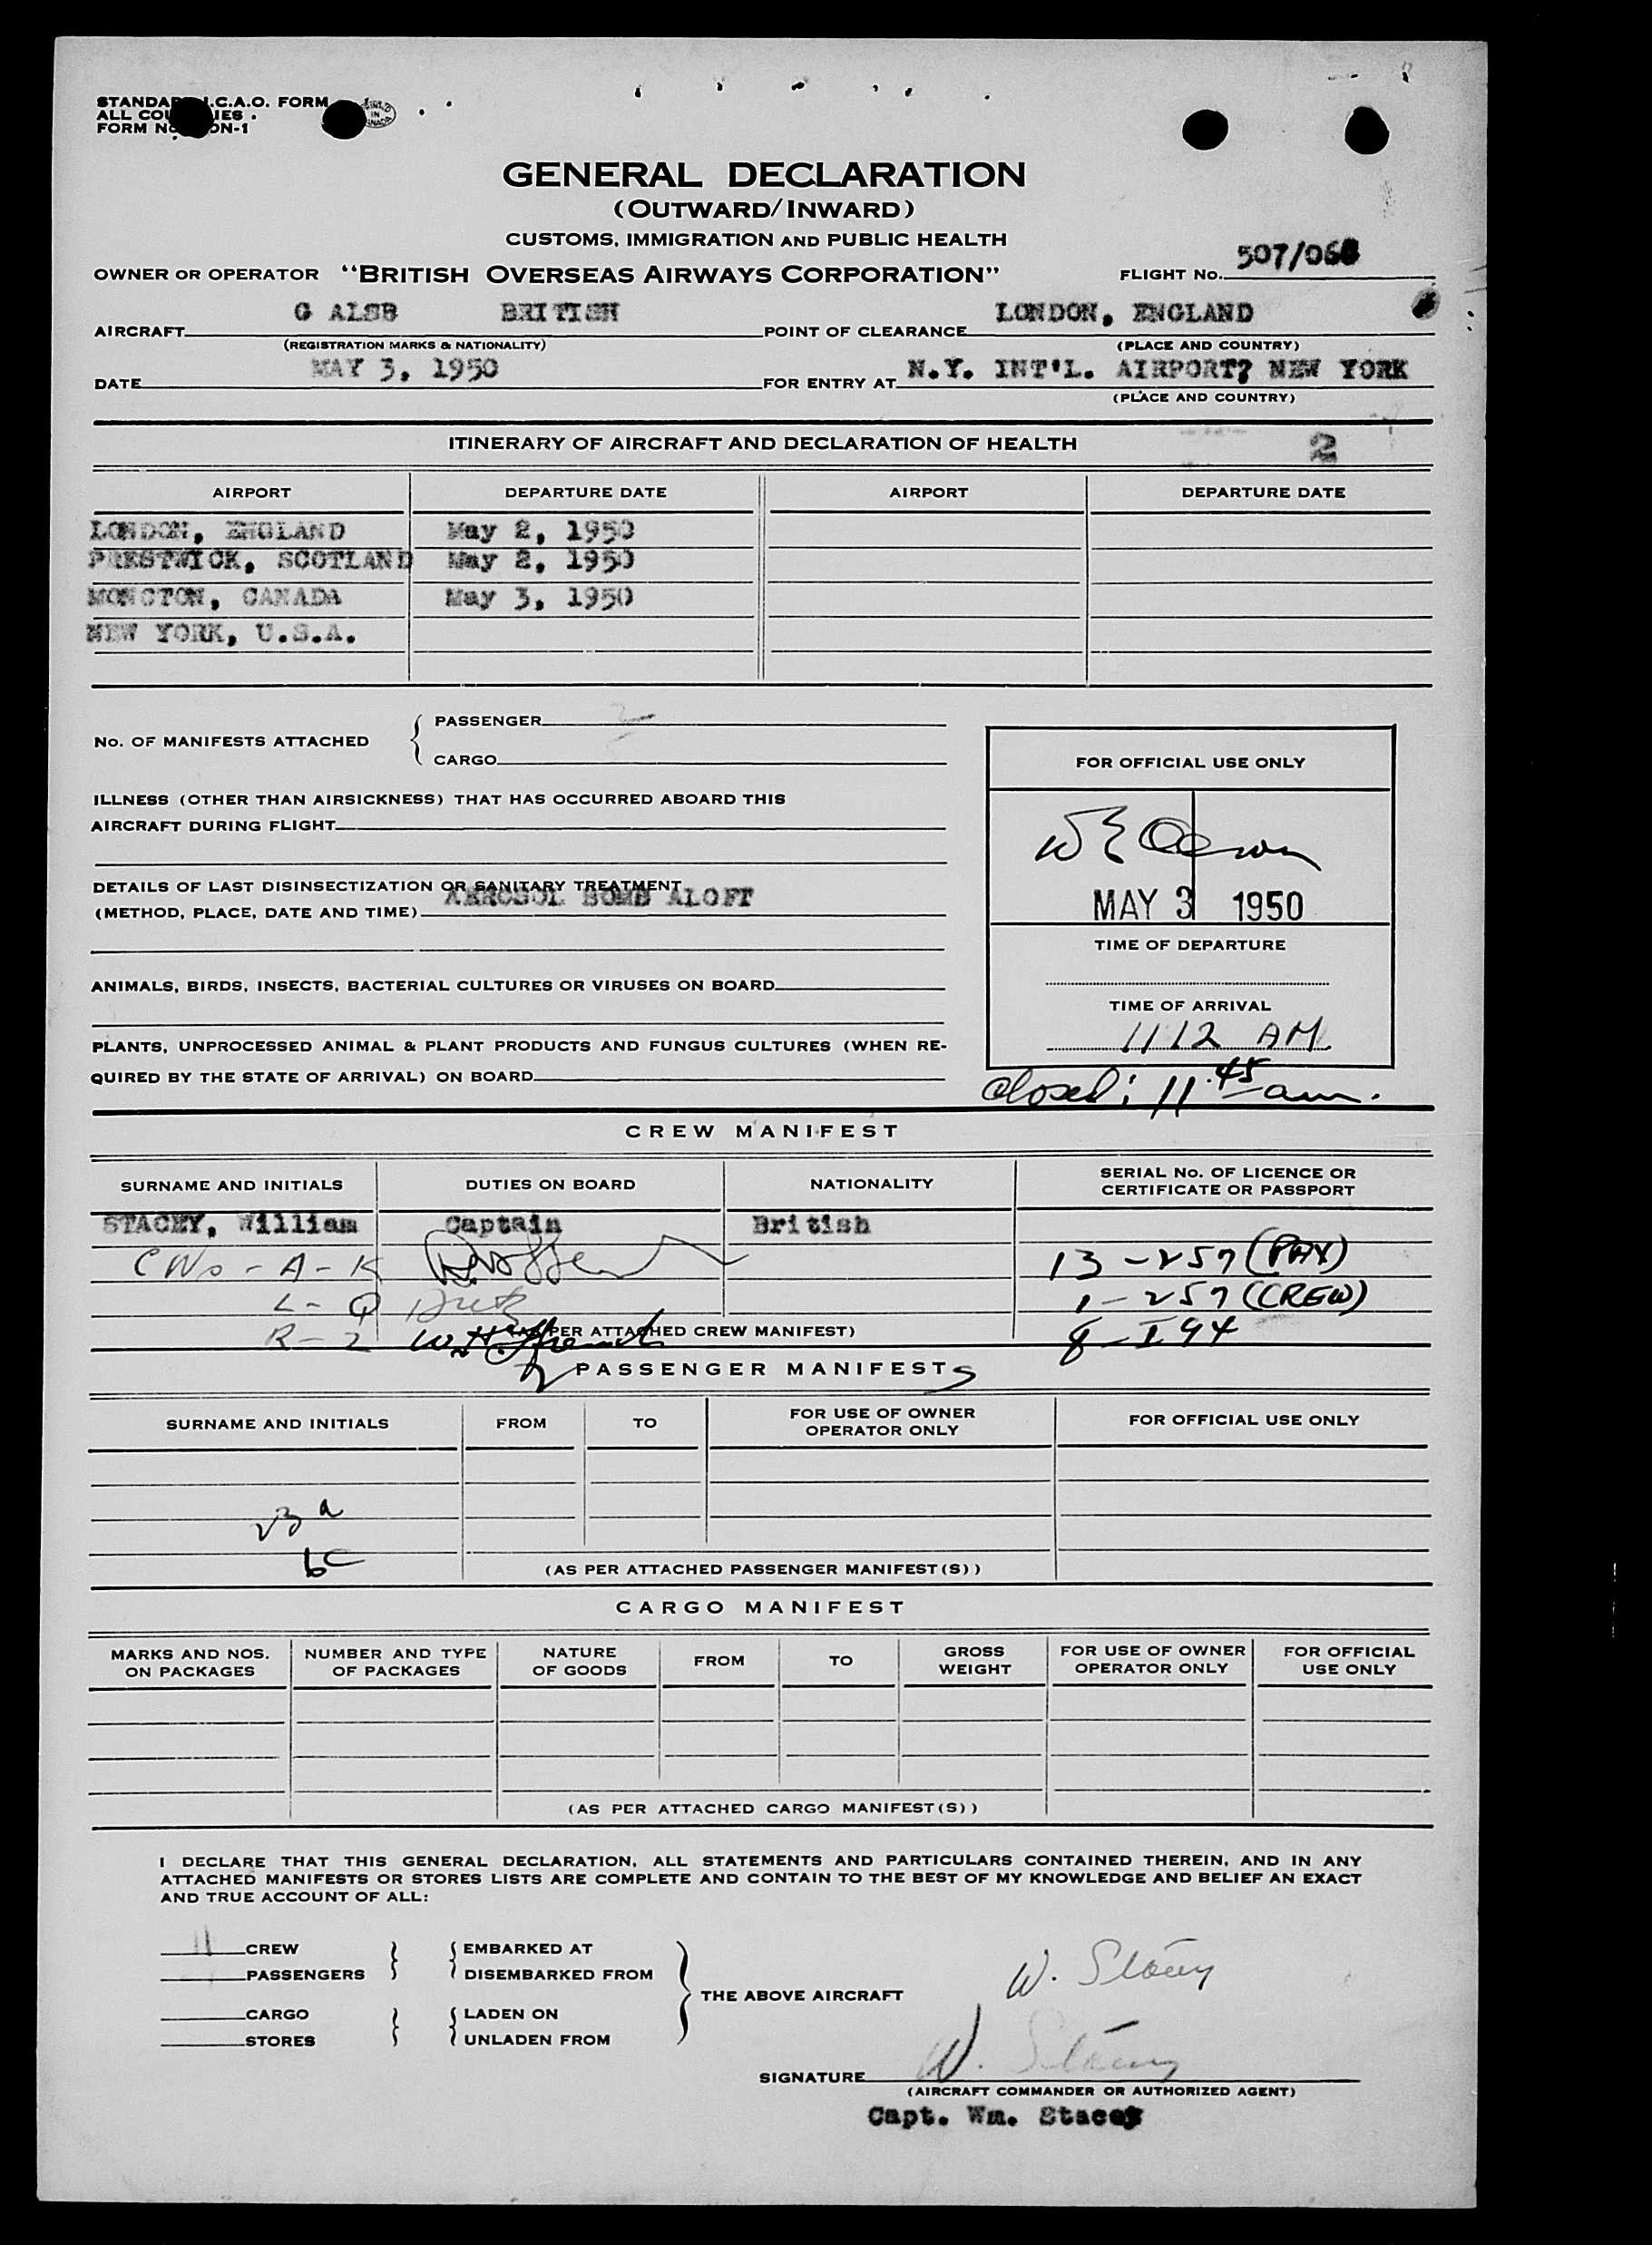 STANDARD I.C.A.O. FORM
ALL COUNTRIES
FORM No. ON-1
GENERAL DECLARATION
(OUTWARD/INWARD)
CUSTOMS, IMMIGRATION AND PUBLIC HEALTH
OWNER OR OPERATOR "BRITISH OVERSEAS AIRWAYS CORPORATION" FLIGHT No. 507/068
AIRCRAFT G ALSB BRITISH POINT OF CLEARANCE LONDON, ENGLAND
(REGISTRATION MARKS & NATIONALITY) (PLACE AND COUNTRY)
DATE MAY 3, 1950 FOR ENTRY AT N.Y. INT'L. AIRPORT? NEW YORK
(PLACE AND COUNTRY)
ITINERARY OF AIRCRAFT AND DECLARATION OF HEALTH 2
AIRPORT DEPARTURE DATE AIRPORT DEPARTURE DATE
LONDON, ENGLAND May 2, 1950
PRESTWICK, SCOTLAND May 2, 1950
MONCTON, CANADA May 3, 1950
NEW YORK, U.S.A.
No. OF MANIFESTS ATTACHED
PASSENGER 2
CARGO
FOR OFFICIAL USE ONLY
ILLNESS (OTHER THAN AIRSICKNESS) THAT HAS OCCURRED ABOARD THIS
AIRCRAFT DURING FLIGHT
DETAILS OF LAST DISINSECTIZATION OR SANITARY TREATMENT
(METHOD, PLACE, DATE AND TIME) AEROSOL BOMB ALOFT
MAY 3 1950
TIME OF DEPARTURE
ANIMALS, BIRDS, INSECTS, BACTERIAL CULTURES OR VIRUSES ON BOARD
TIME OF ARRIVAL
1112 AM
PLANTS, UNPROCESSED ANIMAL & PLANT PRODUCTS AND FUNGUS CULTURES (WHEN RE-
QUIRED BY THE STATE OF ARRIVAL) ON BOARD
Closed: 11.45 am.
CREW MANIFEST
SURNAME AND INITIALS DUTIES ON BOARD NATIONALITY SERIAL No. OF LICENCE OR
CERTIFICATE OR PASSPORT
STACEY, William Captain British
A - K 13 - 257 (PAX)
L - Q 1 - 257 (CREW)
R - Z (AS PER ATTACHED CREW MANIFEST) 8 - I 94
2 PASSENGER MANIFESTS
SURNAME AND INITIALS FROM TO FOR USE OF OWNER
OPERATOR ONLY FOR OFFICIAL USE ONLY
23 a
6 c
(AS PER ATTACHED PASSENGER MANIFEST(S))
CARGO MANIFEST
MARKS AND NOS.
ON PACKAGES NUMBER AND TYPE
OF PACKAGES NATURE
OF GOODS FROM TO GROSS
WEIGHT FOR USE OF OWNER
OPERATOR ONLY FOR OFFICIAL
USE ONLY
(AS PER ATTACHED CARGO MANIFEST(S))
I DECLARE THAT THIS GENERAL DECLARATION, ALL STATEMENTS AND PARTICULARS CONTAINED THEREIN, AND IN ANY
ATTACHED MANIFESTS OR STORES LISTS ARE COMPLETE AND CONTAIN TO THE BEST OF MY KNOWLEDGE AND BELIEF AN EXACT
AND TRUE ACCOUNT OF ALL:
11 CREW EMBARKED AT
PASSENGERS DISEMBARKED FROM
THE ABOVE AIRCRAFT W. Stacey
CARGO LADEN ON
STORES UNLADEN FROM
SIGNATURE W. Stacey
(AIRCRAFT COMMANDER OR AUTHORIZED AGENT)
Capt. Wm. Stacey